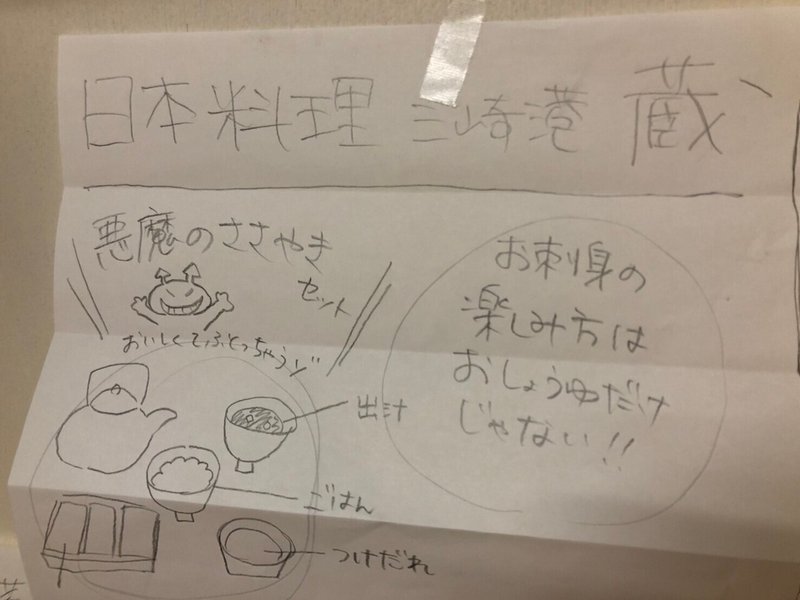 日本料理 三崎港 蔵
悪魔のささやき
セット
おいしくてふとっちゃうゾ
お刺身の
楽しみ方は
おしょうゆだけ
じゃない!!
出汁
ごはん
つけだれ